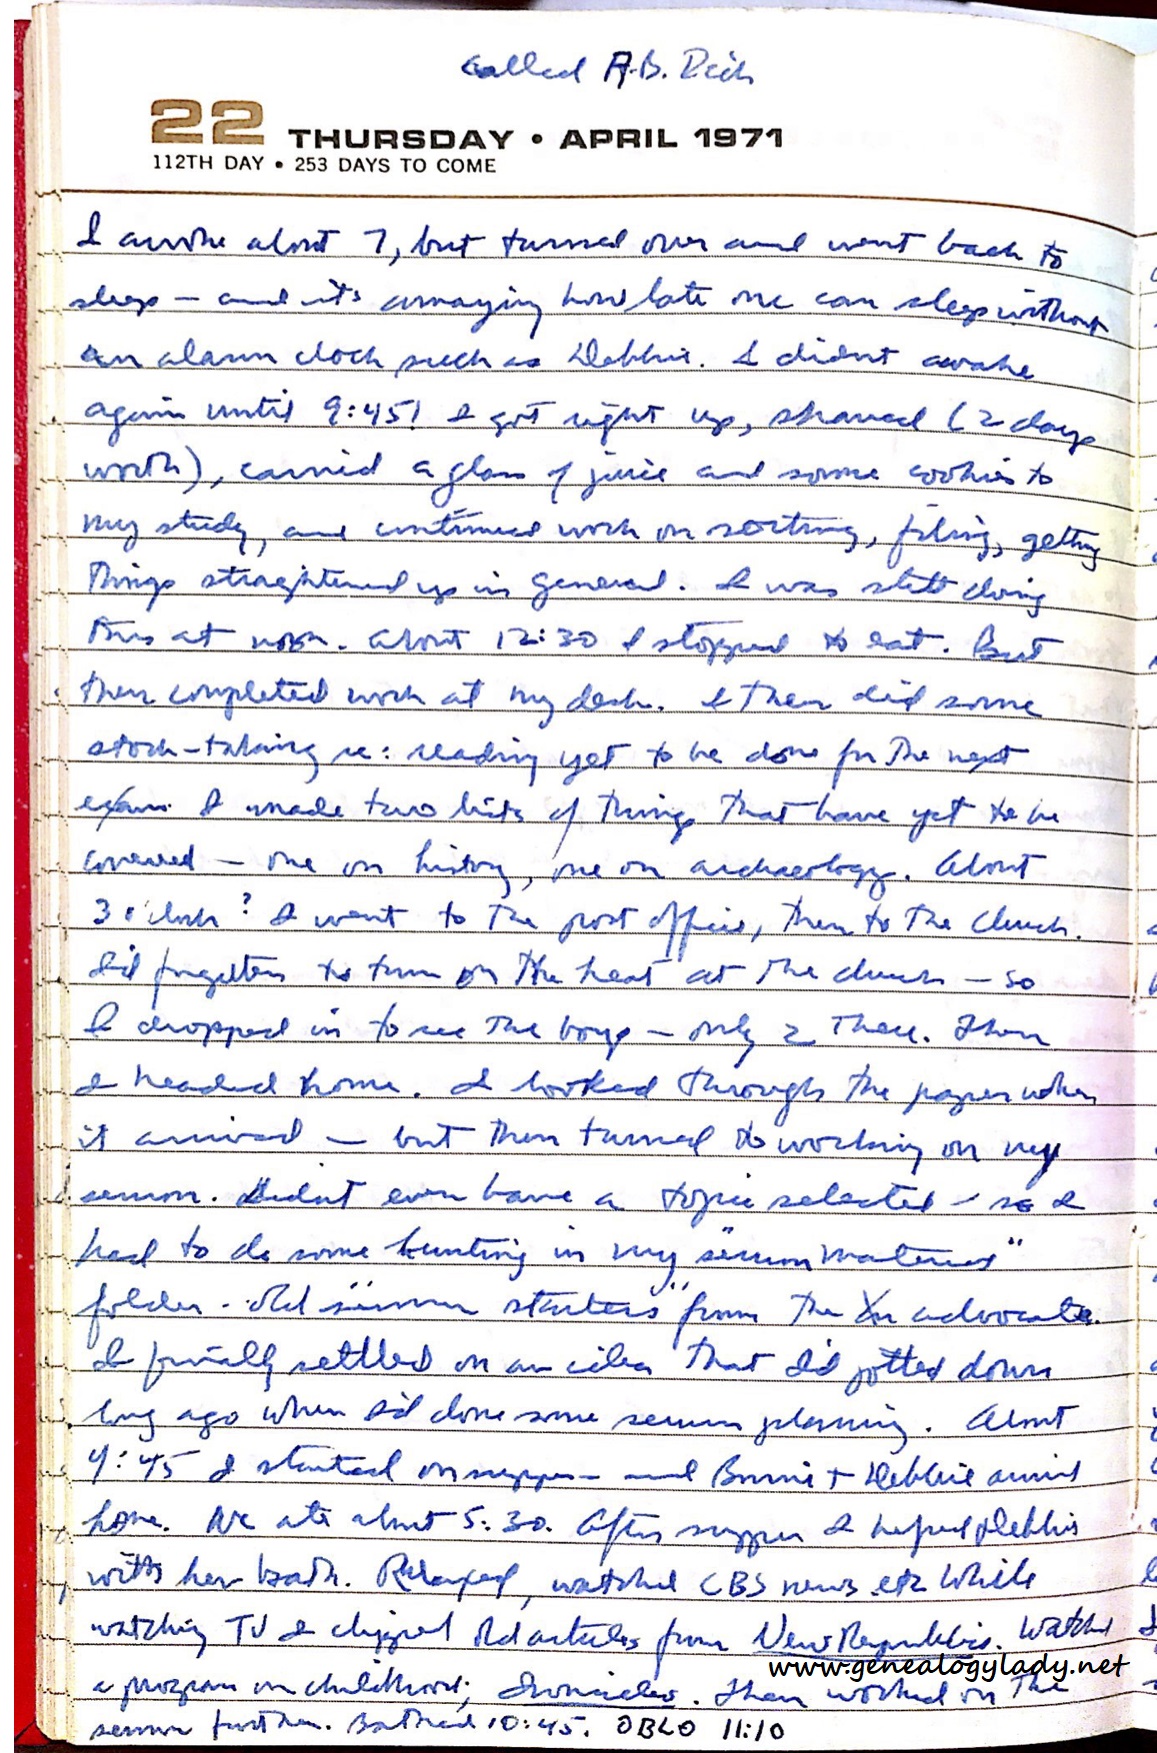 called A.B. Dick
22 THURSDAY • APRIL 1971
112TH DAY • 253 DAYS TO COME
I awoke about 7, but turned over and went back to
sleep – and it's amazing how late one can sleep without
an alarm clock such as Debbie. I didn't awake
again until 9:45! I got right up, shaved (2 days
worth), carried a glass of juice and some cookies to
my study, and continued work on sorting, filing, getting
things straightened up in general. I was still doing
this at noon. About 12:30 I stopped to eat. But
then completed work at my desk. I then did some
stock-taking re: reading yet to be done for the next
exam. I made two lists of things that have yet to be
covered – one on history, one on archaeology. About
3 o'clock? I went to the post office, then to the church.
I'd forgotten to turn on the heat at the church – so
I dropped in to see the boys – only 2 there. Then
I headed home. I looked through the paper when
it arrived – but then turned to working on my
sermon. Didn't even have a topic selected – so I
had to do some hunting in my "sermon material"
folder. Old "sermon starters" from the Xn advocate.
I finally settled on an idea that I'd jotted down
long ago when I'd done some sermon planning. About
4:45 I started on supper – and Bonnie + Debbie arrived
home. We ate about 5:30. After supper I helped Debbie
with her bath. Relaxed, watched CBS news etc While
watching TV I clipped old articles from New Republics. Watched
www.genealogylady.net
a program on childhood; Ironsides. Then worked on the
sermon further. Bathed 10:45. OBLO 11:10